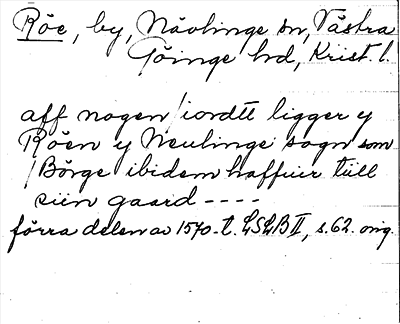 Röe, by, Nävlinge sn, Västra
Göinge hd, Krist. l.
aff nogen / iordtt ligger y
Röen y Neulinge sogn som
/ Börge ibidem haffuer tiill
siin gaard ----
förra delen av 1570-t. LSLB II, s. 62. orig.